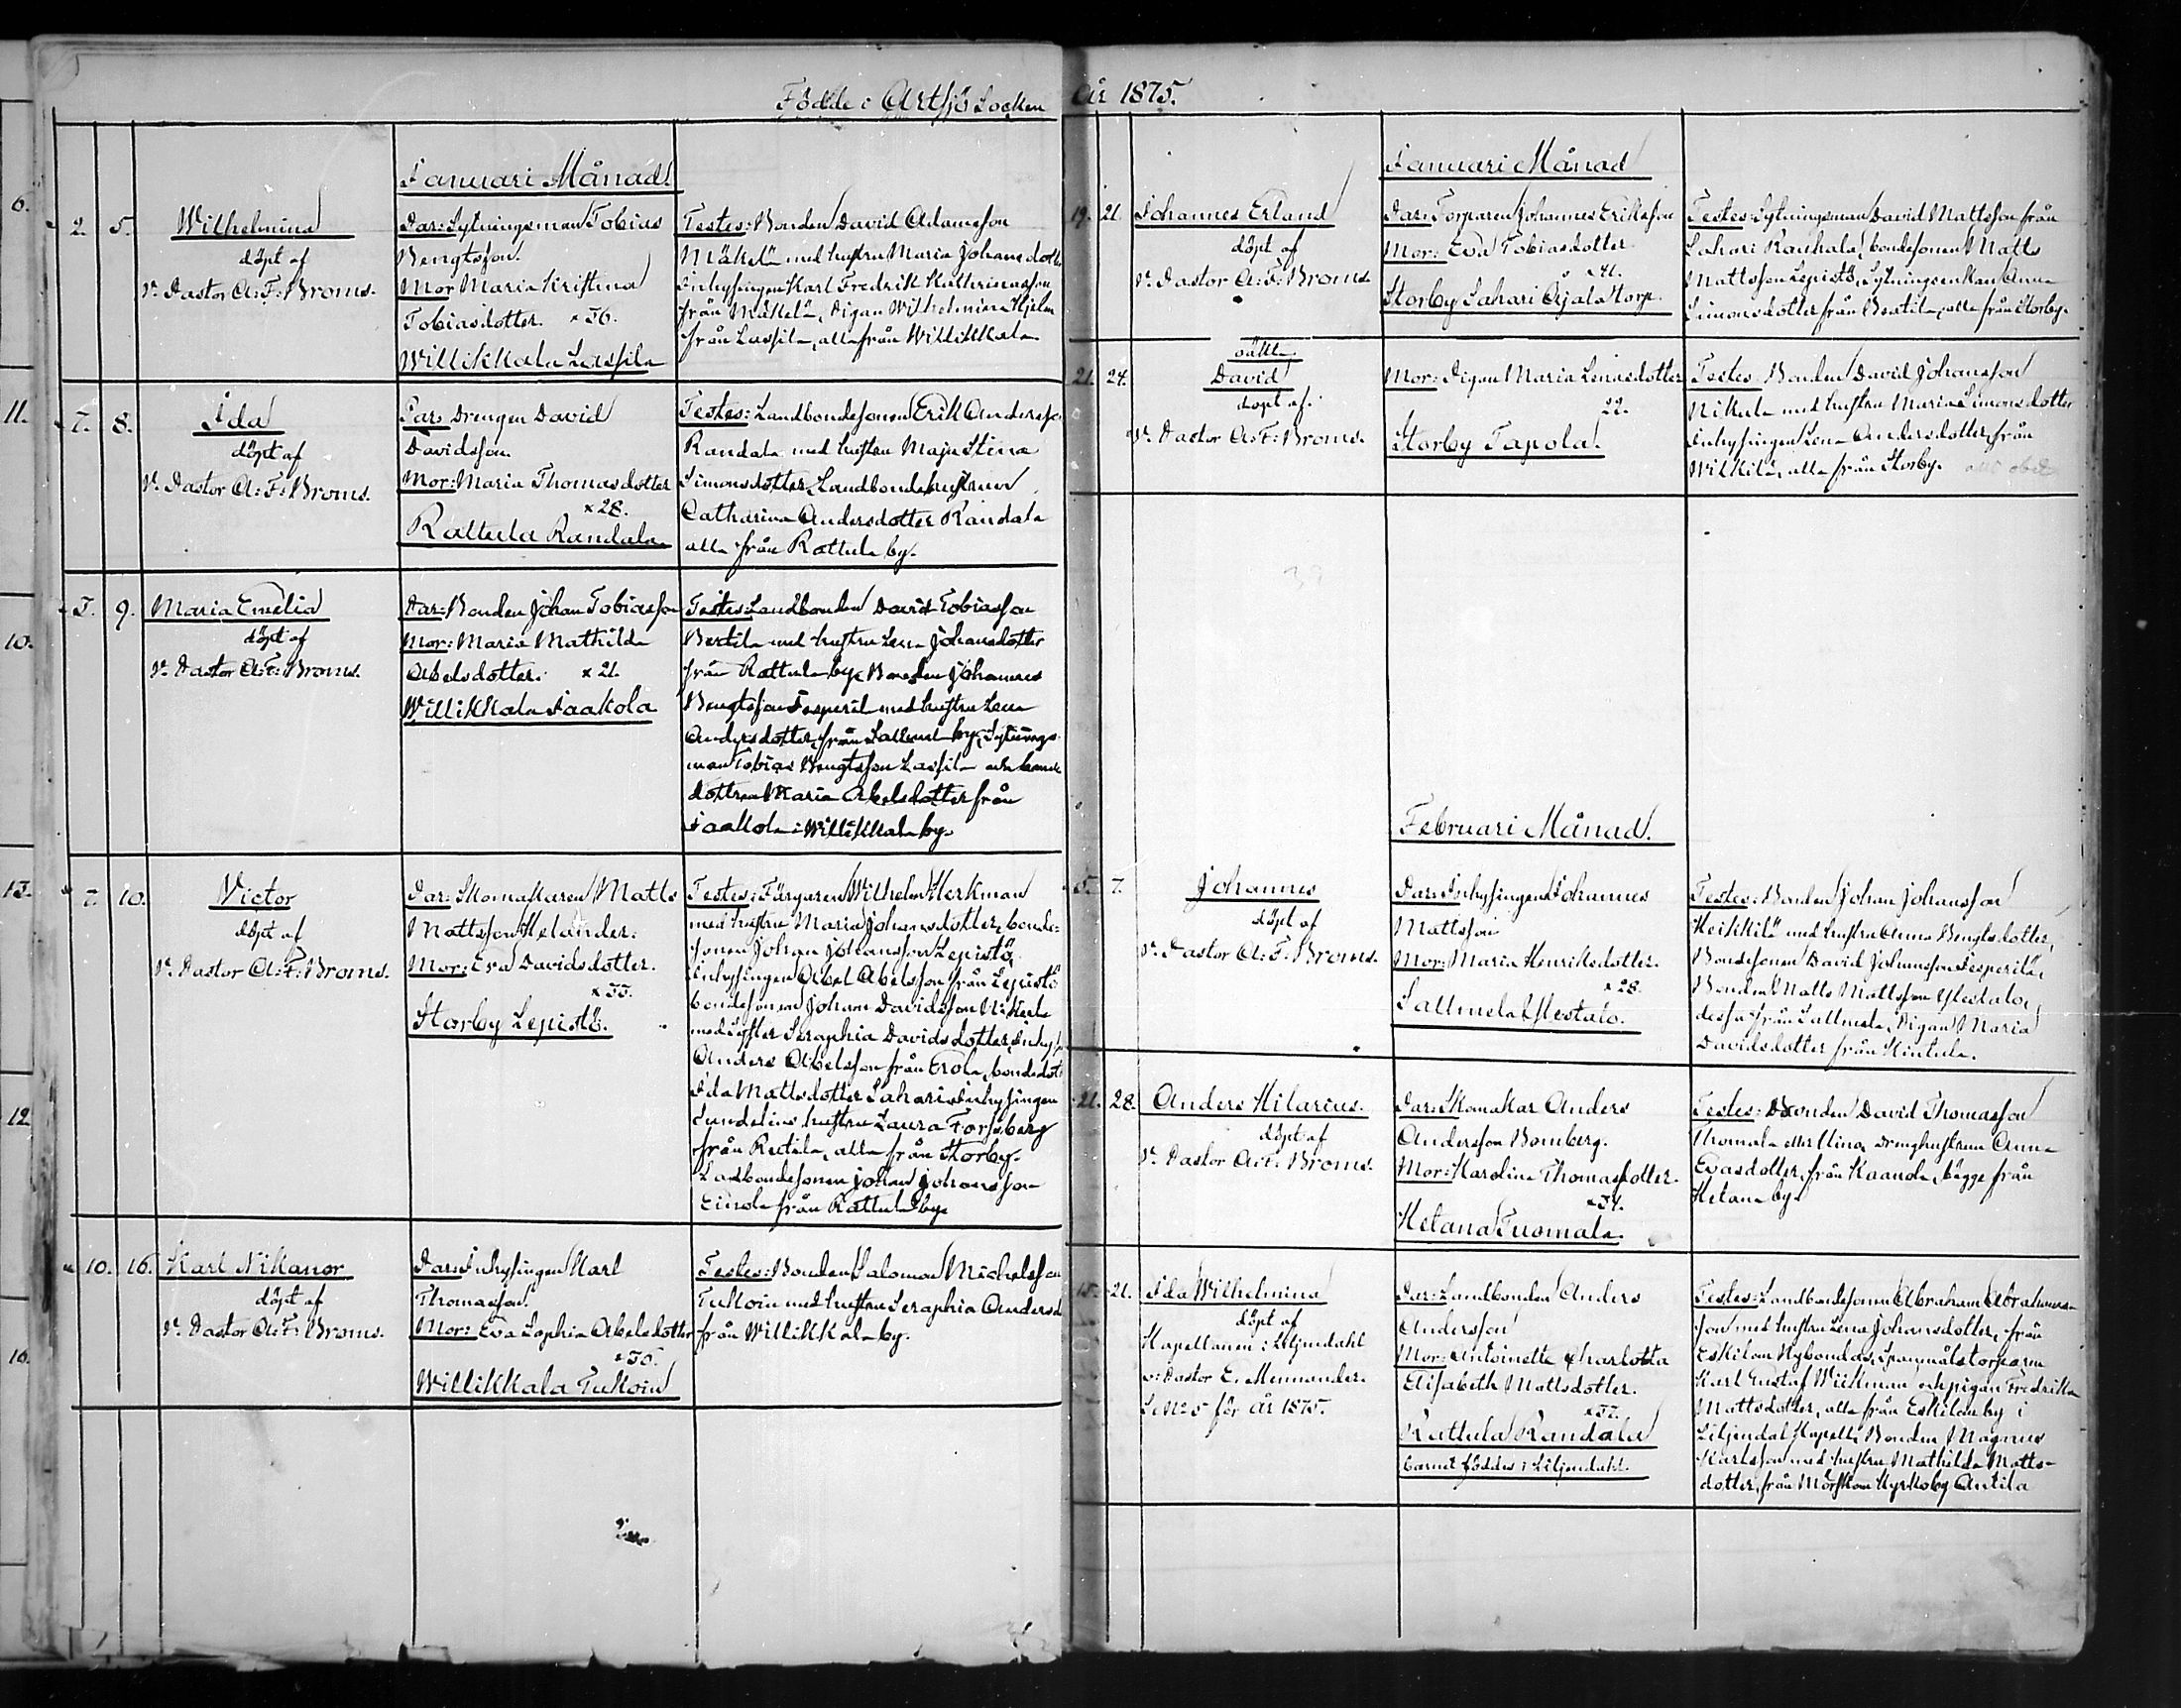 Födde i Artsjö Socken År 1875.
Januari Månad.
2. 5. Wilhelmina
döpt af
V. Pastor A: F: Broms.
Par: Sytningsman Tobias
Bengtsson.
Mor Maria Kristina
Tobiasdotter. x 36.
Willikkala Lassila
Testes: Bonden David Adamsson
Mäkelä med hustru Maria Johansdotter
Inhysingen Karl Fredrik Kathrinasson
från Mäkelä, Pigan Wilhelmina Hjelm
från Lassila, alla från Willikkala
7. 8. Ida
döpt af
V. Pastor A: F: Broms.
Par: Drengen David
Davidsson.
Mor: Maria Thomasdotter
x 28.
Rattula Randala
Testes: Landbondesonen Erik Andersson
Randala med hustru Maja Stina
Simonsdotter, Landbondehustrun
Catharina Andersdotter Randala
alla från Rattula by.
3. 9. Maria Emelia
döpt af
V. Pastor A: F: Broms.
Par: Bonden Johan Tobiasson
Mor: Maria Mathilda
Abelsdotter. x 21.
Willikkala Jaakola
Testes: Landbonden David Tobiasson
Bertila med hustru Lena Johansdotter
från Rattula by, Bonden Johannes
Bengtsson Jesperilä med hustru Lena
Andersdotter, från Sallmela by, Sytnings-
man Tobias Bengtsson Lassila och bonde
dottren Maria Abelsdotter från
Jaakola i Willikkala by.
7. 10. Victor
döpt af
V. Pastor A: F: Broms.
Par: Skomakaren Matts
Mattsson Helander.
Mor: Eva Davidsdotter.
x 33.
Storby Lepistö.
Testes: Färgaren Wilhelm Herkman
med hustru Maria Johansdotter, bonde-
sonen Johan Johansson Lepistö,
Inhysingen Abel Abelsson från Lepistö
bondesonen Johan Davidsson Nikula
med syster Seraphia Davidsdotter, Inhys
Anders Abelsson från Erola, bondedott
Ida Mattsdotter Sahari, Inhysingen
Lundelins hustru Laura Forsberg
från Rutila, alla från Storby.
Landbondesonen Johan Johansson
Einola från Rattula by.
10. 16. Karl Nikanor
döpt af
V. Pastor A: F: Broms.
Par: Inhysingen Karl
Thomasson.
Mor: Eva Sophia Abelsdotter
x 35.
Willikkala Tukoin
Testes: Bonden Salomon Michelsson
Tukoin med hustru Seraphia Andersd
från Willikkala by.
Januari Månad
19. 21. Johannes Erland
döpt af
V. Pastor A: F: Broms.
Par: Torparen Johannes Eriksson
Mor: Eva Tobiasdotter
x 41.
Storby Sahari Ojala torp.
Testes: Sytningsman David Mattsson från
Sahari Rauhala, bondesonen Matts
Mattsson Lepistö, Sytningsenkan Anna
Simonsdotter från Bertila, alla från Storby.
21. 24. oäkta
David
döpt af
V. Pastor A: F: Broms.
Mor: Pigan Maria Lenasdotter
22.
Storby Tapola.
Testes: Bonden David Johansson
Nikula med hustru Maria Simonsdotter
Inhysingen Lena Andersdotter från
Wilkilä, alla från Storby.
Februari Månad.
5. 7. Johannes
döpt af
V. Pastor A: F: Broms.
Par: Inhysingen Johannes
Mattsson
Mor: Maria Henriksdotter.
x 28.
Sallmela Ylestalo.
Testes: Bonden Johan Johansson
Heikkilä med hustru Anna Bengtsdotter,
Bondesonen David Johansson Jesperilä,
Bonden Matts Mattsson Ylestalo,
dessa från Sallmela, Pigan Maria
Davidsdotter från Hintula.
21. 28. Anders Hilarius.
döpt af
V. Pastor A: F: Broms.
Par: Skomakar Anders
Andersson Bomberg.
Mor: Karolina Thomasdotter.
x 34.
Hetana Tuomala.
Testes: Bonden David Thomasson
Thomala eller Uino, Drenghustrun Anna
Evasdotter, från Kaanola, bägge från
Hetana by.
15. 21. Ida Wilhelmina
döpt af
Kapellanen i Liljendahl
v: Pastor E. Mennander.
S. No 5 för år 1875.
Par: Landbonden Anders
Andersson
Mor: Antoinetta Charlotta
Elisabeth Mattsdotter.
x 37.
Rattula Randala
barnet föddes i Liljendahl.
Testes: Landbondesonen Abraham Abrahams-
son med hustru Lena Johansdotter, från
Eskilom Nybondas, Spannmålstorparen
Karl Gustaf Wiikman och pigan Fredrika
Mattsdotter, alla från Eskilom by i
Liljendal Kapell, Bonden Magnus
Karlsson med hustru Mathilda Matts-
dotter, från Mörskom Kyrkoby Antila
6.
11.
10.
13.
12.
16.